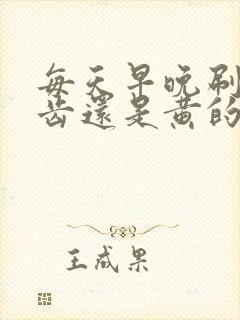 每天早晚刷
齿還是黄的
王成果